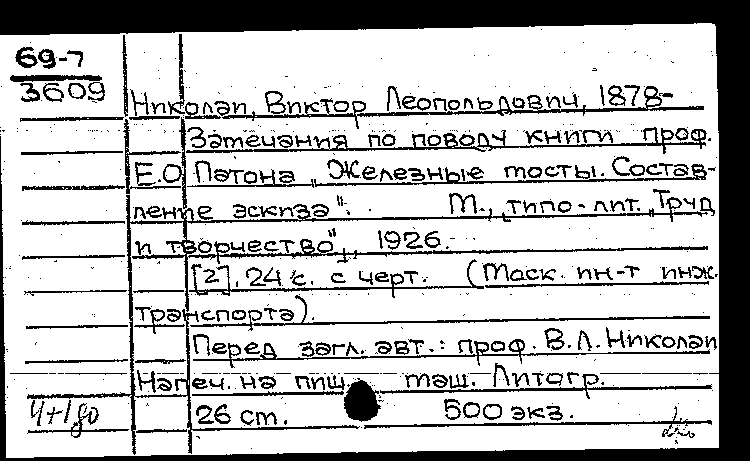 69-7
3609
Николаи, Виктор Леопольдович, 1878-
Замечания по поводу книги проф.
Е.О. Патона „Железные мосты. Состав-
ление эскиза". М., „типо-лит. „Труд
и творчество", 1926.
[2], 24 с. с черт. (Моск. ин-т инж.
транспорта).
Перед загл. авт.: проф. В.Л. Николаи
Напеч. на пиш. маш. Литогр.
26 см. 500 экз.